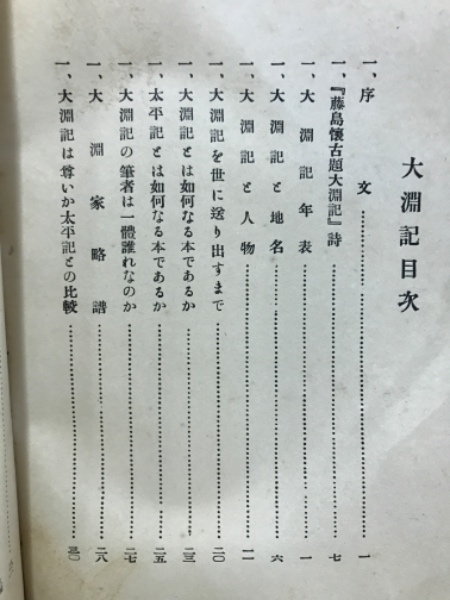 大淵記目次
一、序文………一
一、『藤島懷古題大淵記』詩………七
一、大淵記年表………一
一、大淵記と地名………六
一、大淵記と人物………一一
一、大淵記を世に送り出すまで………二〇
一、大淵記とは如何なる本であるか………二三
一、太平記とは如何なる本であるか………二五
一、大淵記の筆者は一體誰れなのか………二七
一、大淵家略譜………二八
一、大淵記は尊いか太平記との比較………三〇